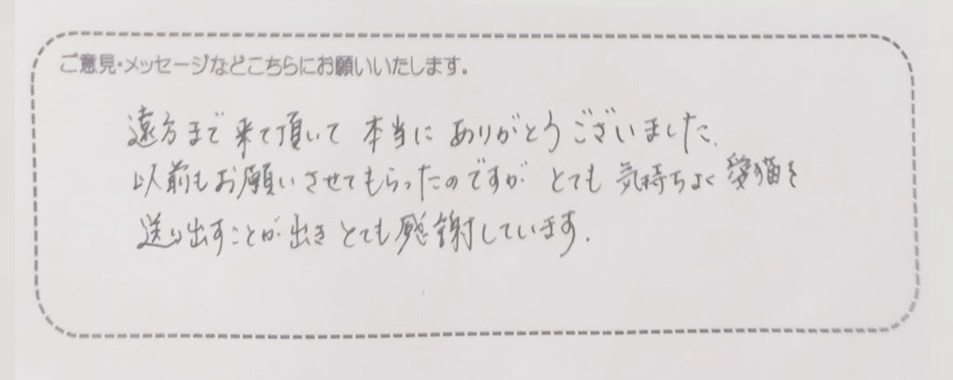 ご意見・メッセージなどこちらにお願いいたします。
遠方まで来て頂いて 本当に ありがとうございました.
以前もお願いさせてもらったのですが とても 気持ちよく 愛猫を
送り出すことが出き とても感謝しています.